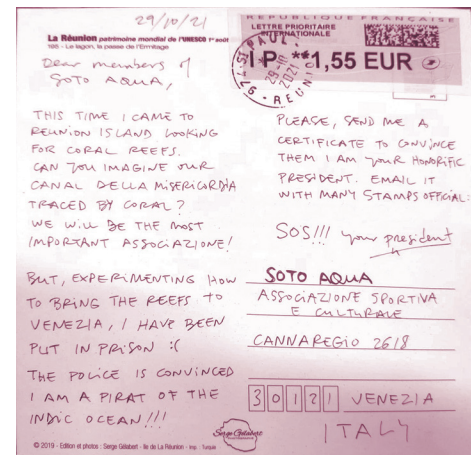 29/10/21
La Réunion patrimoine mondial de l'UNESCO 1er août
165 - Le lagon, la passe de l'Ermitage
Dear members of
SOTO AQUA,
THIS TIME I CAME TO
REUNION ISLAND LOOKING
FOR CORAL REEFS.
CAN YOU IMAGINE OUR
CANAL DELLA MISERICORDIA
TRACED BY CORAL?
WE WILL BE THE MOST
IMPORTANT ASSOCIAZIONE!
BUT, EXPERIMENTING HOW
TO BRING THE REEFS TO
VENEZIA, I HAVE BEEN
PUT IN PRISON :(
THE POLICE IS CONVINCED
I AM A PIRAT OF THE
INDIC OCEAN!!!
© 2019 - Edition et photos : Serge Gélabert - Ile de La Réunion - Imp. : Turquie
Serge Gélabert
REPUBLIQUE FRANCAISE
LETTRE PRIORITAIRE
INTERNATIONALE
IP **1,55 EUR
ST PAUL
29-10
2021
974
REUNI
PLEASE, SEND ME A
CERTIFICATE TO CONVINCE
THEM I AM YOUR HONORIFIC
PRESIDENT. EMAIL IT
WITH MANY STAMPS OFFICIAL.
SOS!!! your president
SOTO AQUA
ASSOCIAZIONE SPORTIVA
E CULTURALE
CANNAREGIO 2618
30121 VENEZIA
ITALY